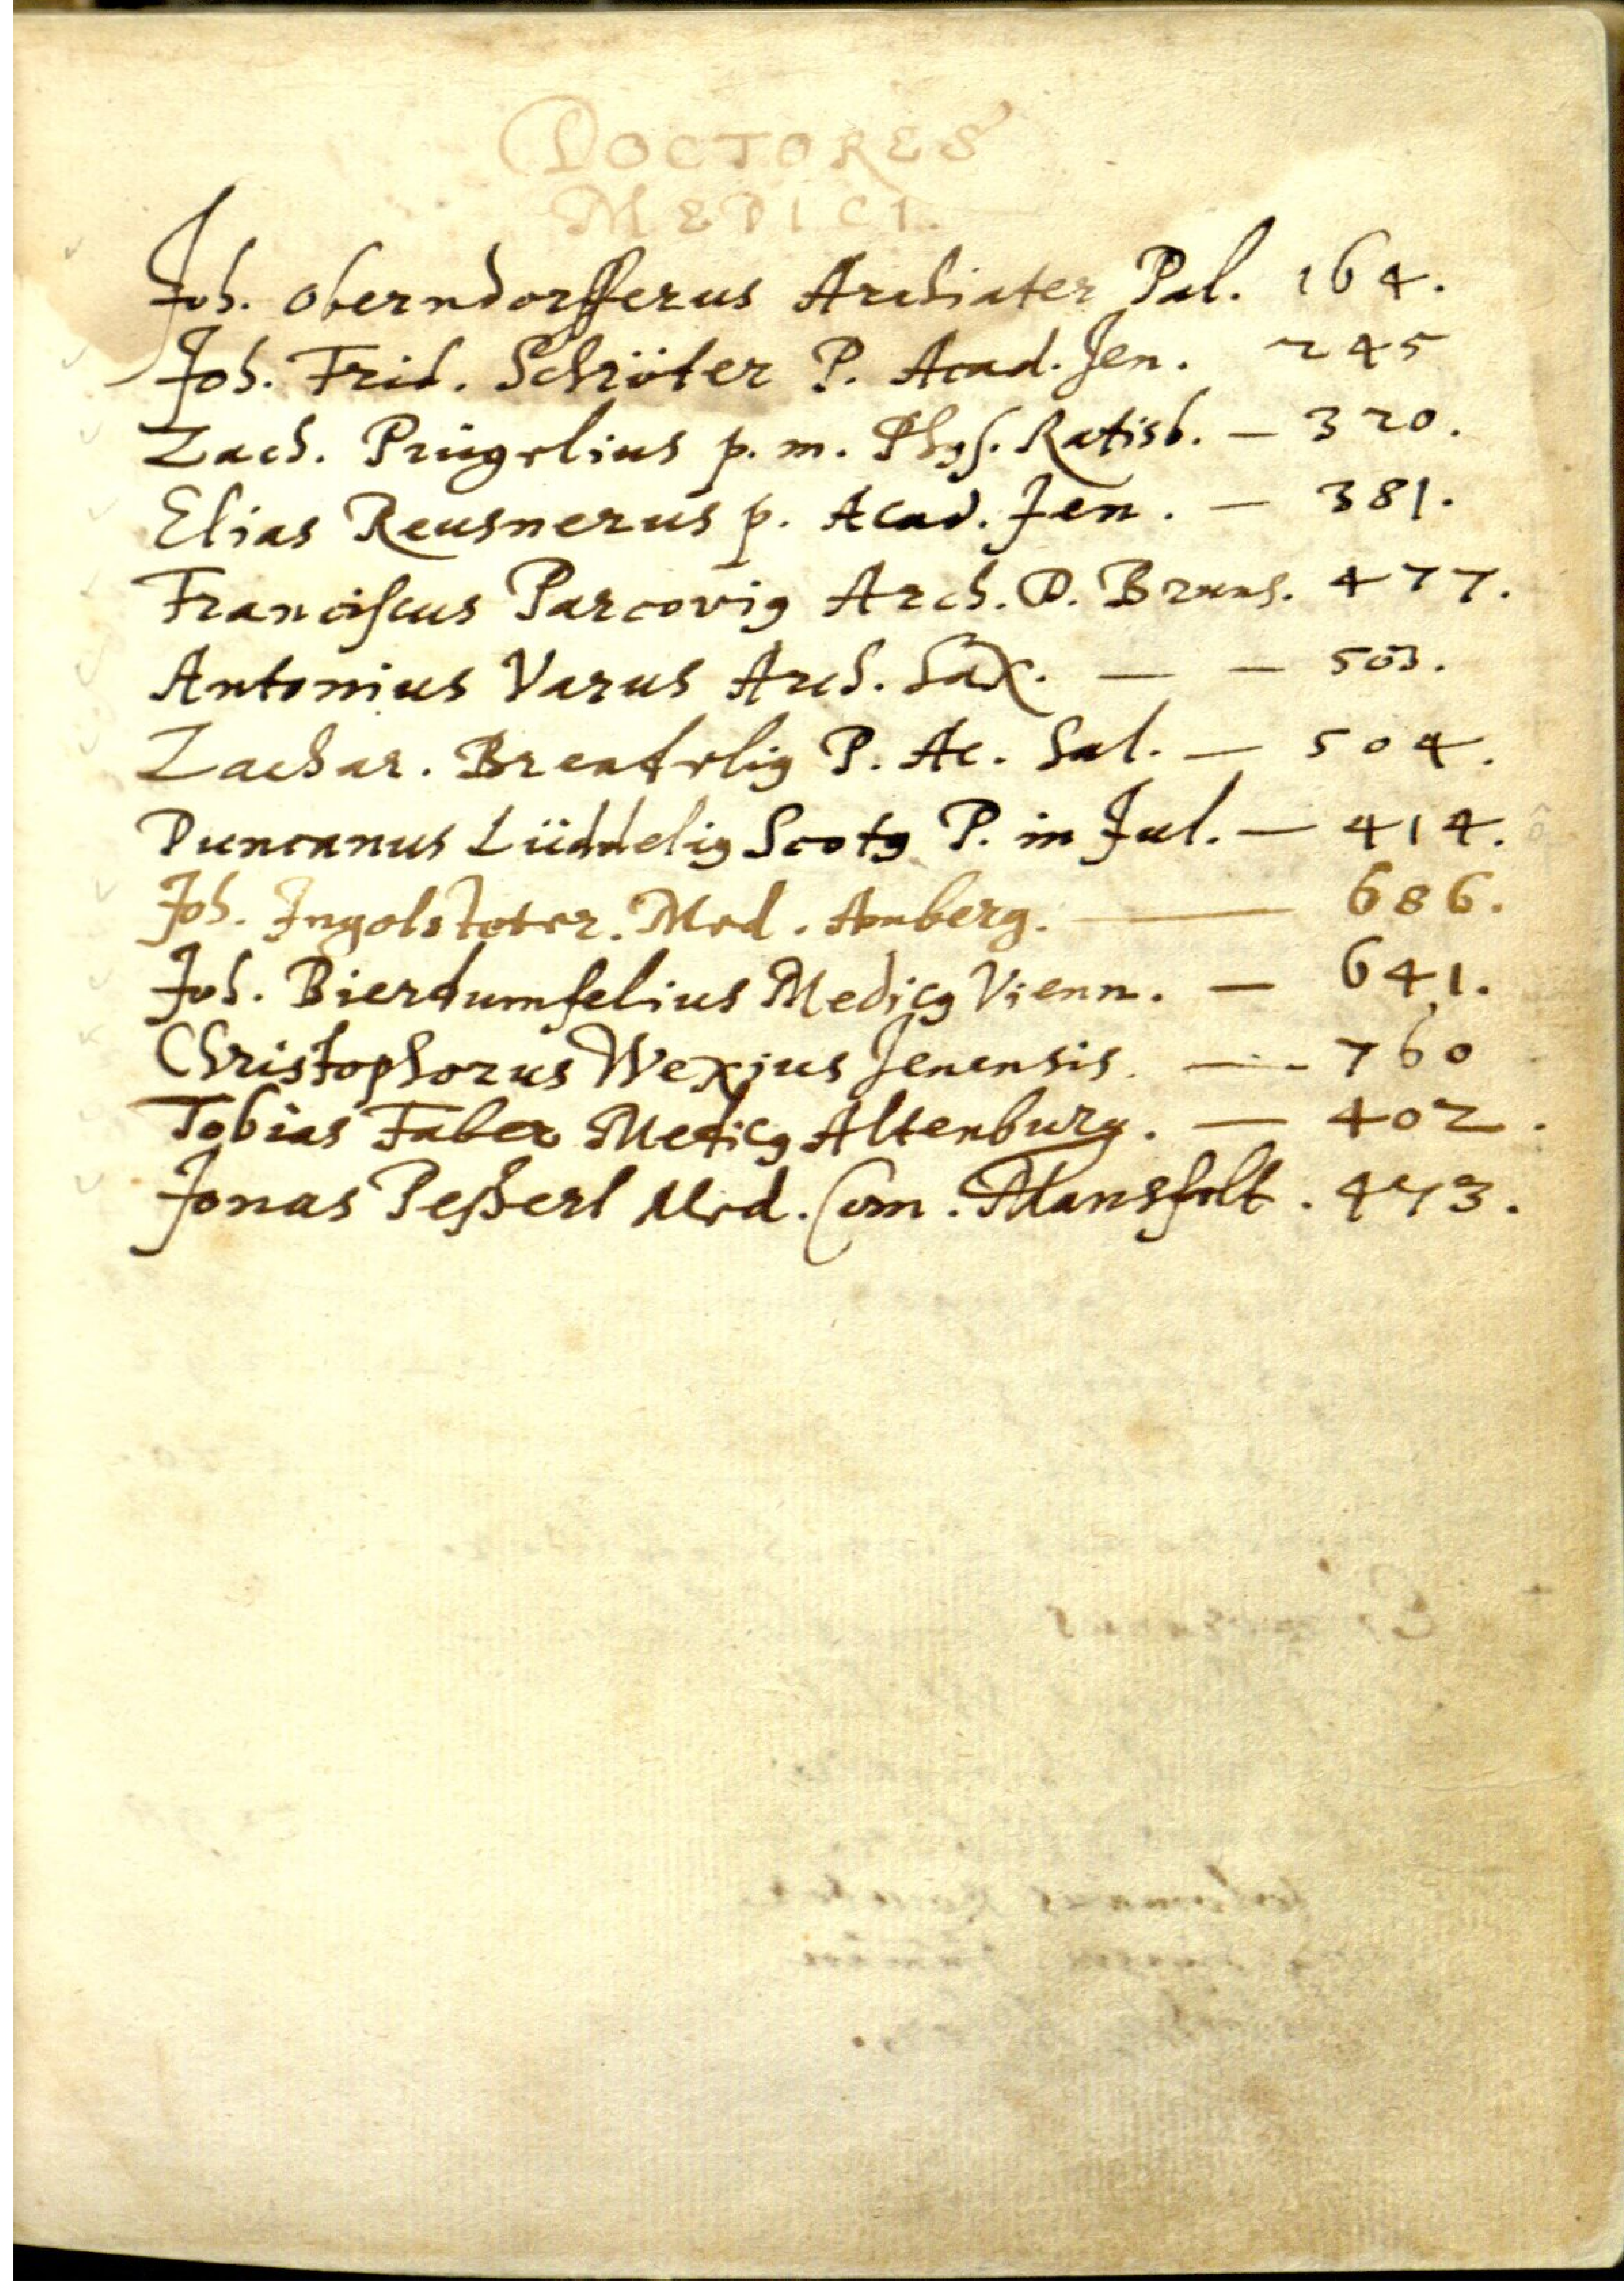 DOCTORES
MEDICI.
Joh. Oberndorfferus Archiater Pal. 164.
Joh. Frid. Schröter P. Acad. Jen. 245
Zach. Prügelius p. m. Phys. Ratisb. — 320.
Elias Reusnerus p. Acad. Jen. — 381.
Franciscus Parcovig Arch. D. Bruns. 477.
Antonius Varus Arch. Sax. — — 503.
Zachar. Brendelig P. Ac. Sal. — 504.
Duncanus Lüddelig Scotg P. in Jul. — 414.
Joh. Ingolstoter. Med. Amberg. — 686.
Joh. Bierdumfelius Medicg Vienn. — 641.
Christophorus Wexius Jenensis. — - 760
Tobias Faber Medicg Altenburg. — 402.
Jonas Peßerl Med. Com. Mansfelt. 473.